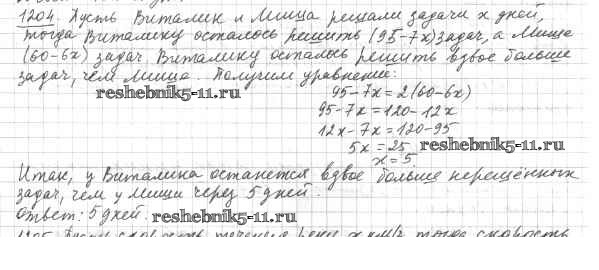 1204. Пусть Виталик и Миша решали задачи x дней,
тогда Виталику осталось решить (95-7x) задач, а Мише
(60-6x) задач. Виталику осталось решить вдвое больше
задач, чем Мише. Получим уравнение:
95-7x=2(60-6x)
reshebnik5-11.ru
95-7x=120-12x
12x-7x=120-95
5x=25
reshebnik5-11.ru
x=5.
Итак, у Виталика останется вдвое больше нерешённых
задач, чем у Миши через 5 дней.
Ответ: 5 дней.
reshebnik5-11.ru